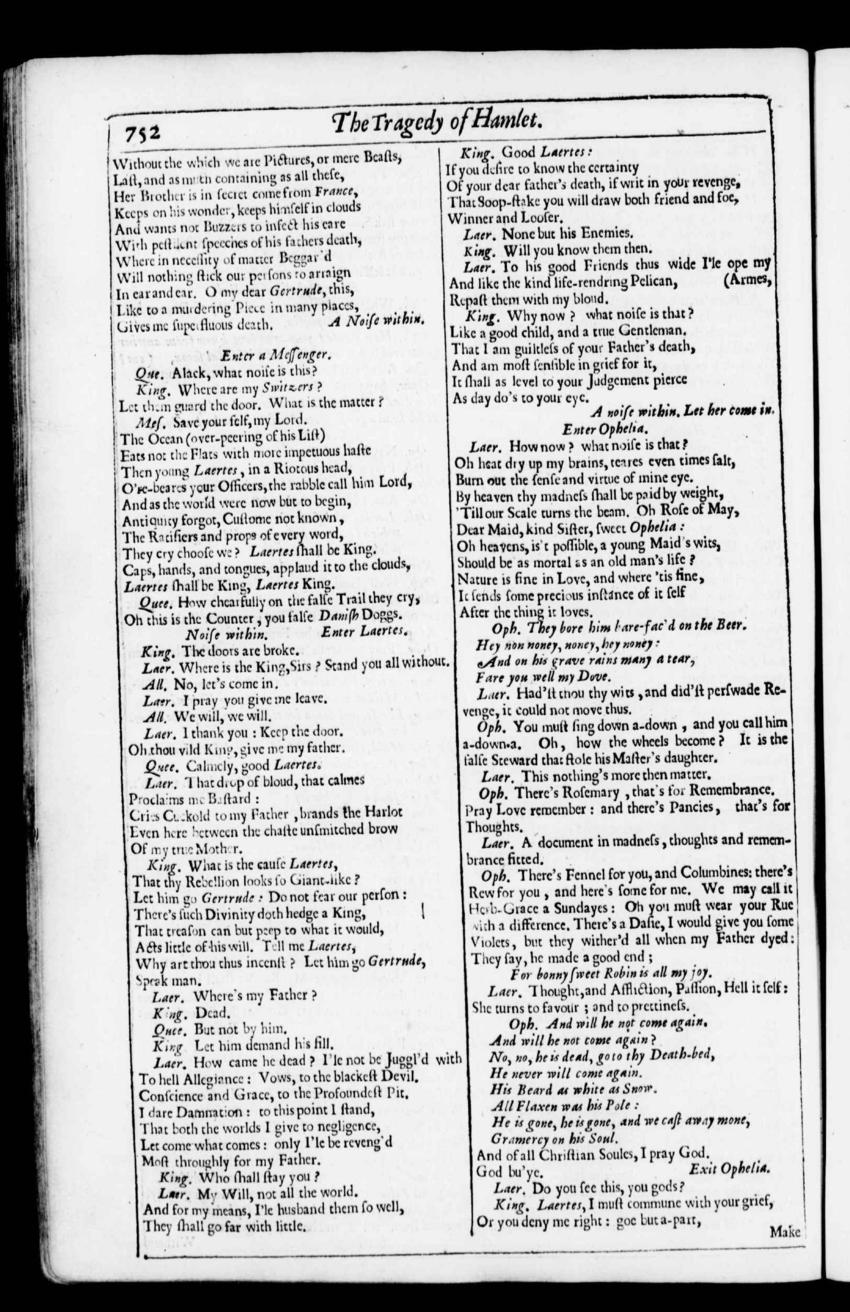 752
The Tragedy of Hamlet.
Without the which we are Pictures, or mere Beaſts,
Laſt, and as much containing as all theſe,
Her Brother is in ſecret come from France,
Keeps on his wonder, keeps himſelf in clouds
And wants not Buzzers to infect his eare
With peſtilent ſpeeches of his fathers death,
Where in neceſſity of matter Beggar'd
Will nothing ſtick our perſons to arraign
In ear and ear. O my dear Gertrude, this,
Like to a murdering Piece in many places,
Gives me ſuperfluous death. A Noiſe within.
Enter a Meſſenger.
Que. Alack, what noiſe is this?
King. Where are my Switzers?
Let them guard the door. What is the matter?
Meſ. Save your ſelf, my Lord.
The Ocean (over-peering of his Liſt)
Eats not the Flats with more impetuous haſte
Then young Laertes, in a Riotous head,
O're-beares your Officers, the rabble call him Lord,
And as the world were now but to begin,
Antiquity forgot, Cuſtome not known,
The Racifiers and props of every word,
They cry chooſe we? Laertes ſhall be King.
Caps, hands, and tongues, applaud it to the clouds,
Laertes ſhall be King, Laertes King.
Quee. How chearfully on the falſe Trail they cry,
Oh this is the Counter, you falſe Daniſh Doggs.
Noiſe within. Enter Laertes.
King. The doors are broke.
Laer. Where is the King, Sirs? Stand you all without.
All. No, let's come in.
Laer. I pray you give me leave.
All. We will, we will.
Laer. I thank you: Keep the door.
Oh thou vild King, give me my father.
Quee. Calmely, good Laertes.
Laer. That drop of bloud, that calmes
Proclaims me Baſtard:
Cries Cuckold to my Father, brands the Harlot
Even here between the chaſte unſmitched brow
Of my true Mother.
King. What is the cauſe Laertes,
That thy Rebellion looks ſo Giant-like?
Let him go Gertrude: Do not fear our perſon:
There's ſuch Divinity doth hedge a King,
That treaſon can but peep to what it would,
Acts little of his will. Tell me Laertes,
Why art thou thus incenſt? Let him go Gertrude,
Speak man.
Laer. Where's my Father?
King. Dead.
Quee. But not by him.
King Let him demand his fill.
Laer. How came he dead? I'le not be Juggl'd with
To hell Allegiance: Vows, to the blackeſt Devil.
Conſcience and Grace, to the Profoundeſt Pit.
I dare Damnation: to this point I ſtand,
That both the worlds I give to negligence,
Let come what comes: only I'le be reveng'd
Moſt throughly for my Father.
King. Who ſhall ſtay you?
Laer. My Will, not all the world.
And for my means, I'le husband them ſo well,
They ſhall go far with little.
King. Good Laertes:
If you deſire to know the certainty
Of your dear father's death, if writ in your revenge,
That Soop-ſtake you will draw both friend and foe,
Winner and Looſer.
Laer. None but his Enemies.
King. Will you know them then.
Laer. To his good Friends thus wide I'le ope my
And like the kind life-rendring Pelican, (Armes,
Repaſt them with my bloud.
King. Why now? what noiſe is that?
Like a good child, and a true Gentleman.
That I am guiltleſs of your Father's death,
And am moſt ſenſible in grief for it,
It ſhall as level to your Judgement pierce
As day do's to your eye.
A noiſe within. Let her come in.
Enter Ophelia.
Laer. How now? what noiſe is that?
Oh heat dry up my brains, teares even times ſalt,
Burn out the ſenſe and virtue of mine eye.
By heaven thy madneſs ſhall be paid by weight,
'Till our Scale turns the beam. Oh Roſe of May,
Dear Maid, kind Siſter, ſweet Ophelia:
Oh heavens, is't poſſible, a young Maid's wits,
Should be as mortal as an old man's life?
Nature is fine in Love, and where 'tis fine,
It ſends ſome precious inſtance of it ſelf
After the thing it loves.
Oph. They bore him bare-fac'd on the Beer.
Hey non noney, noney, hey noney:
And on his grave rains many a tear,
Fare you well my Dove.
Laer. Had'ſt thou thy wits, and did'ſt perſwade Re-
venge, it could not move thus.
Oph. You muſt ſing down a-down, and you call him
a-down-a. Oh, how the wheels become? It is the
falſe Steward that ſtole his Maſter's daughter.
Laer. This nothing's more then matter.
Oph. There's Roſemary, that's for Remembrance.
Pray Love remember: and there's Pancies, that's for
Thoughts.
Laer. A document in madneſs, thoughts and remem-
brance fitted.
Oph. There's Fennel for you, and Columbines: there's
Rew for you, and here's ſome for me. We may call it
Herb-Grace a Sundayes: Oh you muſt wear your Rue
with a difference. There's a Daſie, I would give you ſome
Violets, but they wither'd all when my Father dyed:
They ſay, he made a good end;
For bonny ſweet Robin is all my joy.
Laer. Thought, and Affliction, Paſſion, Hell it ſelf:
She turns to favour; and to prettineſs.
Oph. And will he not come again.
And will he not come again?
No, no, he is dead, go to thy Death-bed,
He never will come again.
His Beard as white as Snow.
All Flaxen was his Pole:
He is gone, he is gone, and we caſt away mone,
Gramercy on his Soul.
And of all Chriſtian Soules, I pray God.
God bu'ye. Exit Ophelia.
Laer. Do you ſee this, you gods?
King. Laertes, I muſt commune with your grief,
Or you deny me right: goe but a-part,
Make